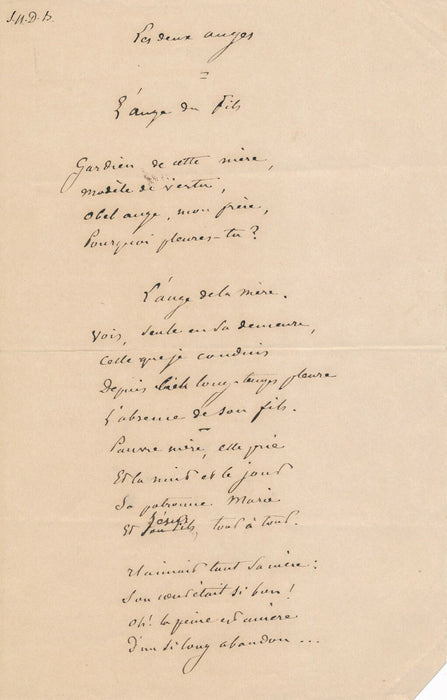 J.M.D.B.
Les deux anges
L'ange du fils
Gardien de cette mère,
Modèle de vertu,
O bel ange, mon frère,
Pourquoi pleures-tu ?
L'ange de la mère.
Vois, seule en sa demeure,
Celle que je conduis
Depuis bien long-temps pleure
L'absence de son fils.
Pauvre mère, elle prie
Et la nuit et le jour
Sa patronne Marie
Et Jésus, tour à tour.
Il aimait tant sa mère :
Son cœur était si bon !
Oh ! la peine est amère
D'un si long abandon ...